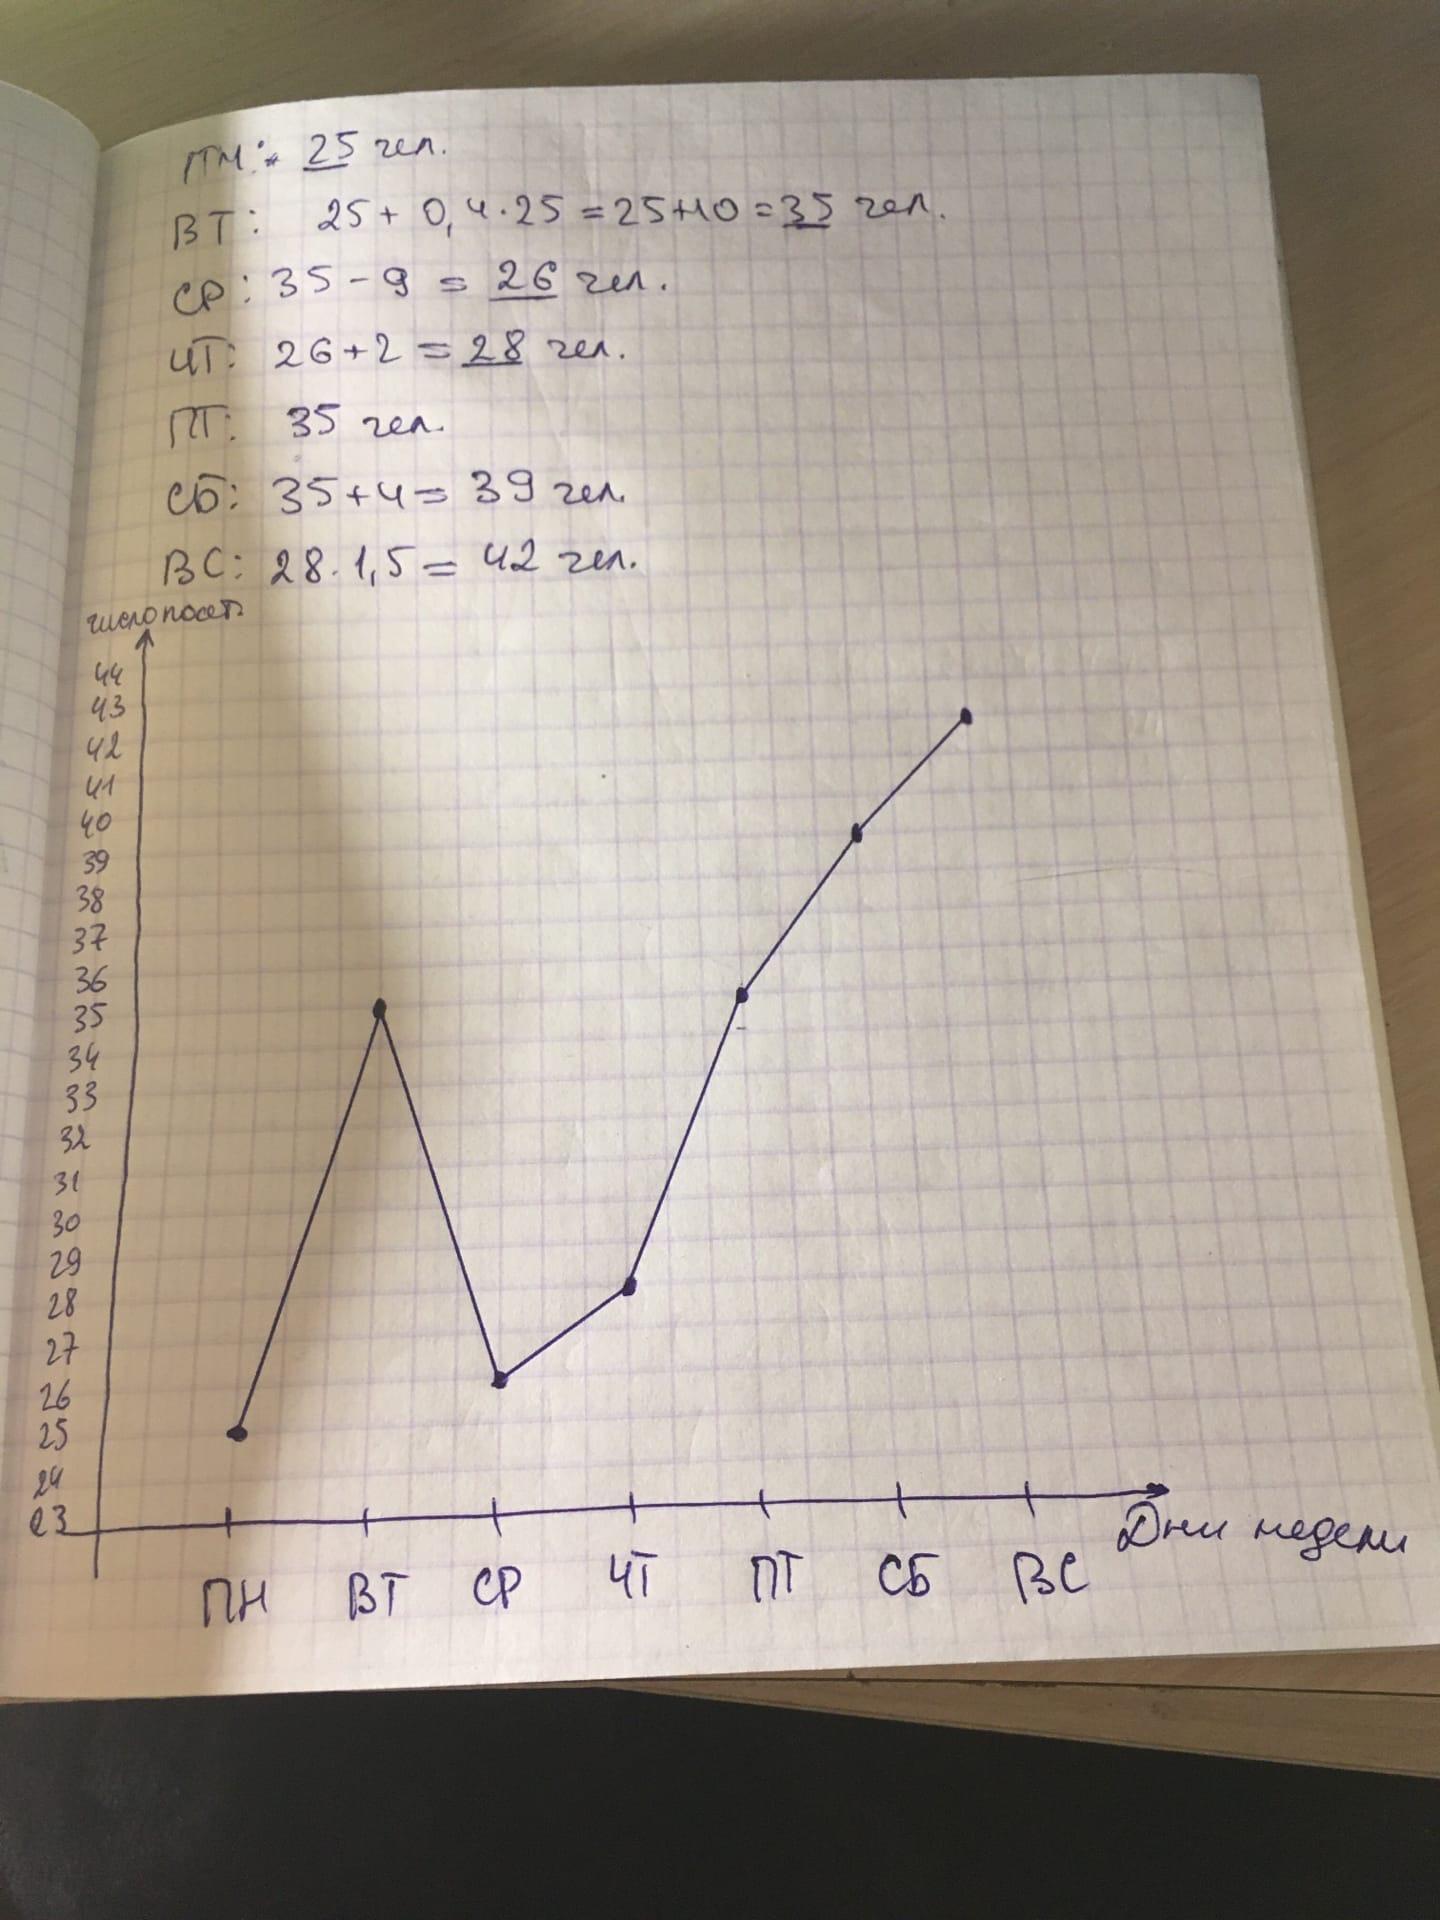 ПН: 25 чел.
ВТ: 25 + 0,4·25 = 25+10 = 35 чел.
СР: 35 - 9 = 26 чел.
ЧТ: 26+2 = 28 чел.
ПТ: 35 чел.
СБ: 35+4 = 39 чел.
ВС: 28·1,5 = 42 чел.
число посет.
44
43
42
41
40
39
38
37
36
35
34
33
32
31
30
29
28
27
26
25
24
23
Дни недели
ПН ВТ СР ЧТ ПТ СБ ВС